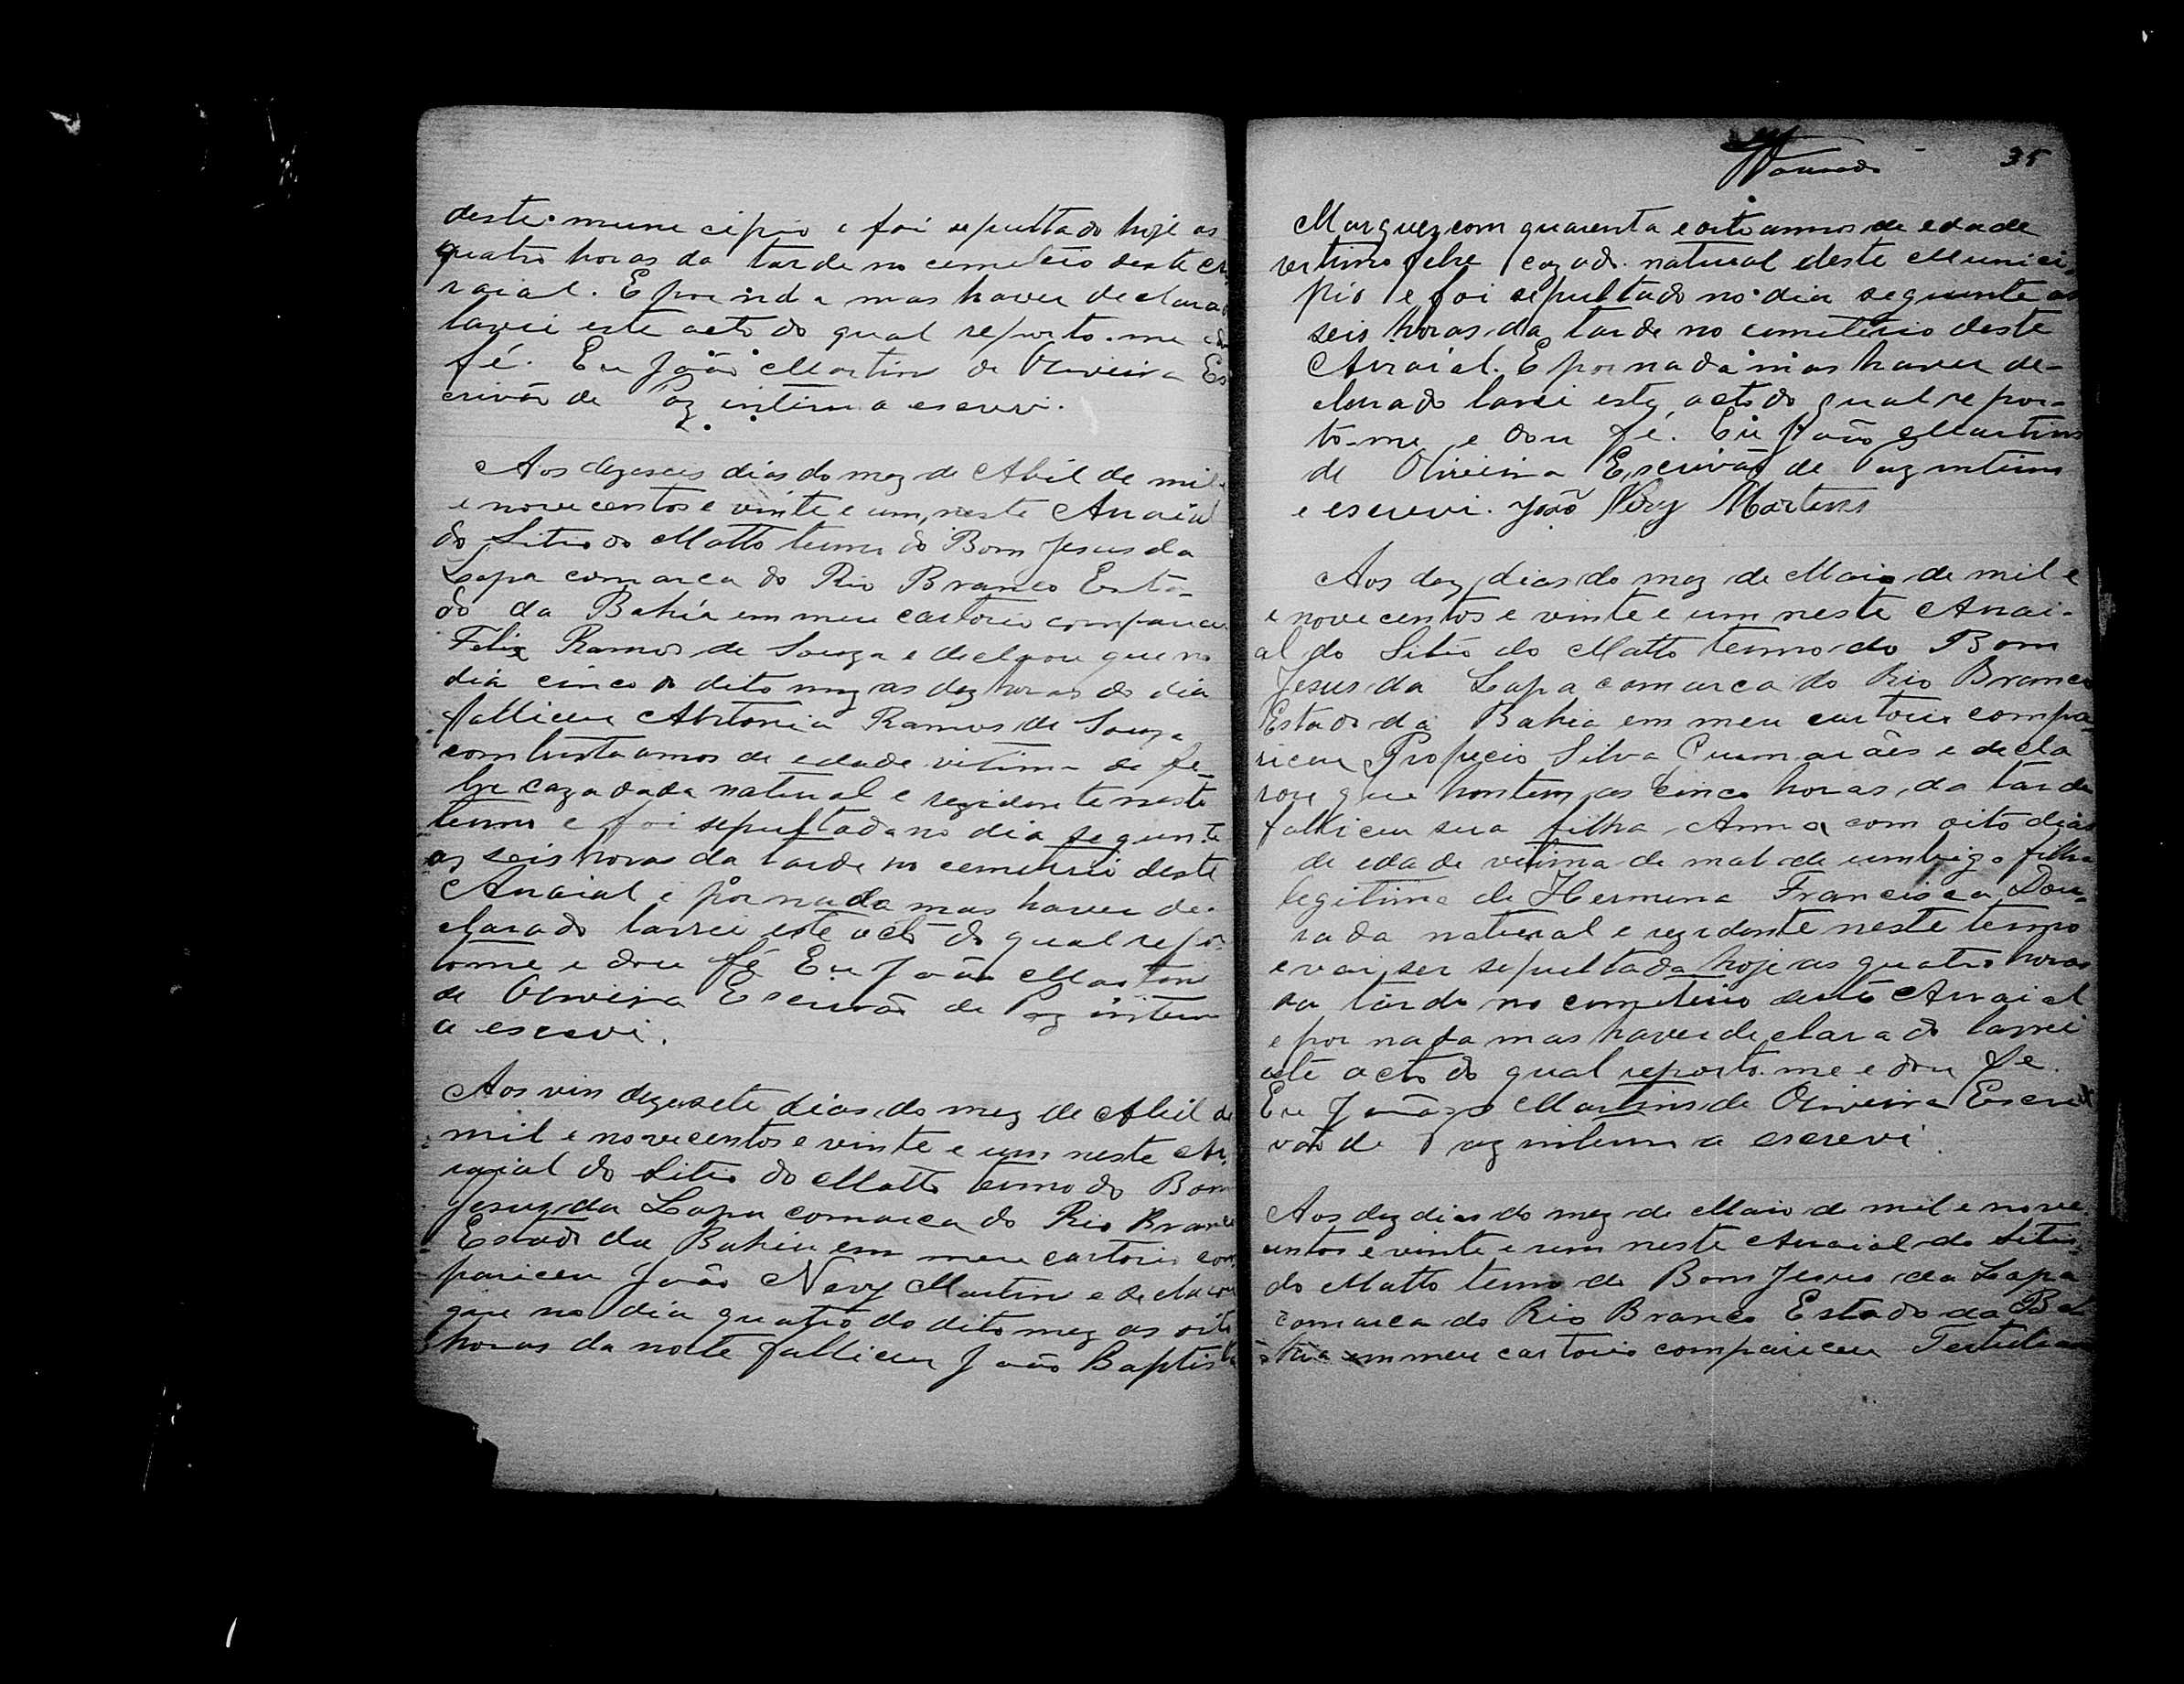 deste municipio e foi sepultado hoje as
quatro horas da tarde no cemiteio deste Ar
raial. E por nada mas haver declarado
lavrei este acto do qual reporto-me e dou
fé. Eu João Martins de Oliveira Es
crivão de Paz interino a escrevi.
Aos dezeseis dias do mez de Abril de mil
e nove centos e vinte e um, neste Arraial
do Sitio do Matto termo do Bom Jesus da
Lapa comarca do Rio Branco Esta-
do da Bahia em meu cartorio compareceu
Felix Ramos de Souza e declarou que no
dia cinco do dito mez as dez horas do dia
falliceu Antonia Ramos de Souza
com trinta annos de edade vitima de fe-
bre cazada da natural e rezidente neste
termo e foi sepultada no dia seguinte
as seis horas da tarde no cemiterio deste
Arraial e por nada mas haver de-
clarado lavrei este acto do qual repor-
tome e dou fé Eu João Martins
de Oliveira Escrivão de Paz interino
a escrevi.
Aos vin dezesete dias do mez de Abril de
mil e nove centos e vinte e um neste Ar-
raial do Sitio do Matto termo do Bom
Jesuz da Lapa comarca do Rio Branco
Estado da Bahia em meu cartorio com-
pariceu João Nery Martins e declarou
que no dia quatro do dito mez as oito
horas da noite falliceu João Baptista
35
Dourado
Marquez com quarenta e oito annos de edade
vertima febre cazado natural deste Munici-
pio e foi sepultado no dia seguinte as
seis horas da tarde no cemiterio deste
Arraial. E por nada mas haver de-
clarado lavrei este acto do qual repor-
to-me e dou fé. Eu João Martins
de Oliveira Escrivão de Paz interino
e escrevi. João Nery Martins
Aos dez dias do mez de Maio de mil e
e nove centos e vinte e um neste Arrai-
al do Sitio do Matto termo do Bom
Jesus da Lapa comarca do Rio Branco
Estado da Bahia em meu cartorio compa-
riceu Propicio Silva Guimarães e decla
rou que hontem as cinco horas da tarde
falliceu sua filha Anna com oito dias
de edade vitima de mal de umbigo filha
legitima de Hermina Francisca Dou-
rada natural e rezidente neste termo
e vai ser sepultada hoje as quatro horas
da tarde no cemiterio deste Arraial
e por nada mas haver declarado lavrei
este acto do qual reporto-me e dou fé.
Eu João Martins de Oliveira Escri
vão de Paz interino a escrevi.
Aos dez dias do mez de Maio de mil e nove
centos e vinte e um neste Arraial do Sitio
do Matto termo do Bom Jesus da Lapa
comarca do Rio Branco Estado da Ba
hia em meu cartorio compariceu Tertulian